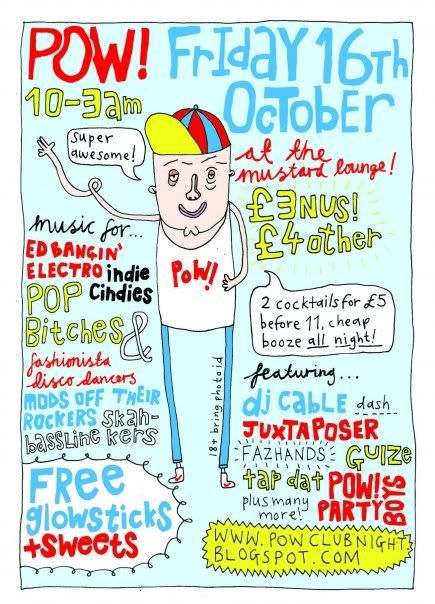 POW! FRIDAY 16TH
10-3am OCTOBER
super
awesome!
at the
mustard lounge!
£3NUS!
£4 other
music for...
ED BANGIN'
ELECTRO indie
POP Cindies
Bitches &
fashionista
disco dancers
MODS OFF THEIR
ROCKERS skah-
bassline kers
POW!
2 cocktails for £5
before 11, cheap
booze all night!
18+ bring photo id
featuring...
dj CABLE dash
JUXTAPOSER
FAZHANDS GUIZE
tap dat POW!
plus many PARTY
more! BOYS
FREE
glowsticks
+sweets
WWW.POWCLUBNIGHT
BLOGSPOT.COM